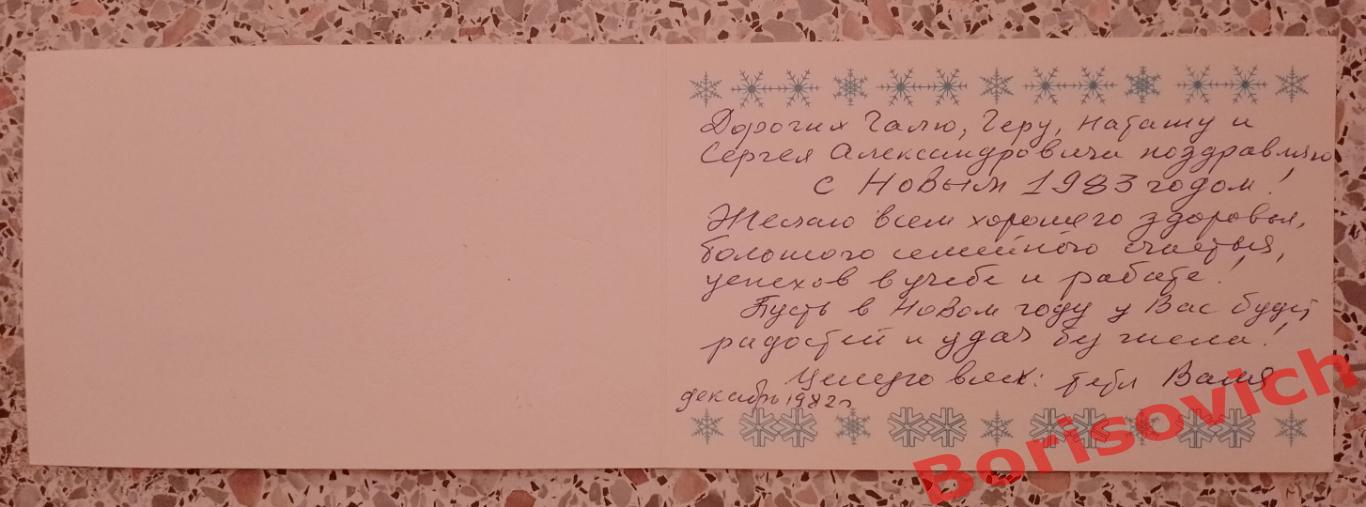 Дорогих Галю, Геру, Наташу и
Сергея Александровича поздравляю
с Новым 1983 годом!
Желаю всем хорошего здоровья,
большого семейного счастья,
успехов в учебе и работе!
Пусть в Новом году у Вас будет
радостей и удач без числа!
Целую всех: Валя
декабрь 1982 г
Borisovich